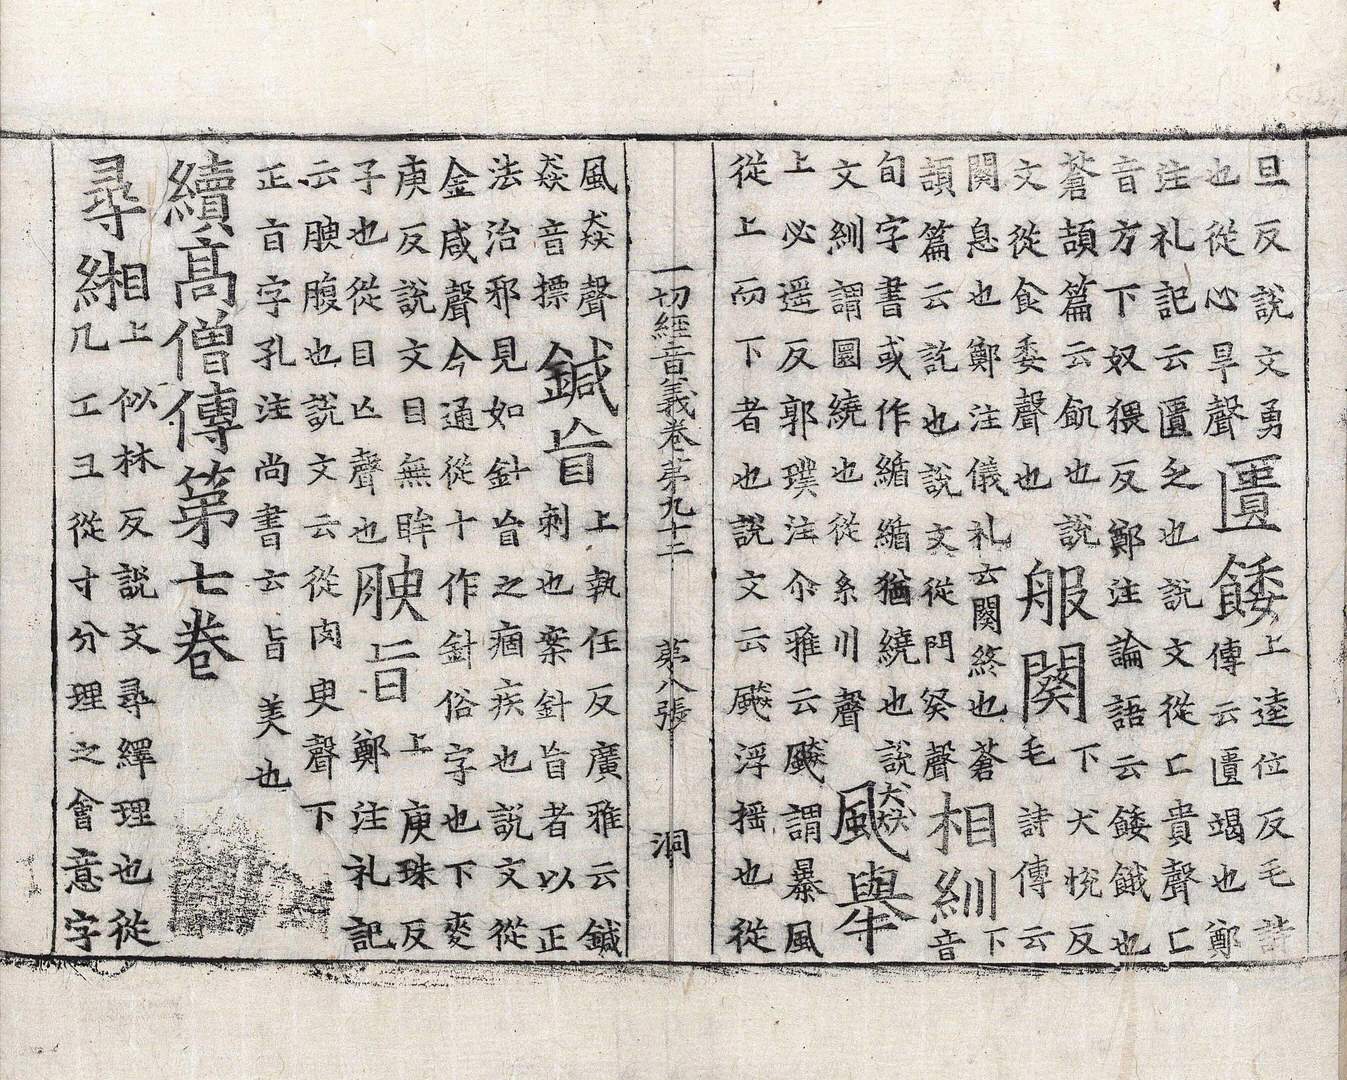 旦反說文勇
也從心旱聲
匱餧
上逵位反毛詩
傳云匱竭也鄭
注礼記云匱乏也說文從匚貴聲匚
音方下奴猥反鄭注論語云餧餓也
蒼頡篇云飢也說
文從食委聲也
服闋
下犬悅反
毛詩傳云
闋息也鄭注儀礼云闋終也蒼
頡篇云訖也說文從門癸聲
相紃
下
音
旬字書或作緧緧猶繞也說
文紃謂圜繞也從糸川聲
飊舉
上必遥反郭璞注尒雅云飊謂暴風
從上而下者也說文云飊浮揺也從
一切經音義卷第九十二 第八張 洞
風猋聲
猋音摽
鍼肓
上執任反廣雅云鍼
刺也案針盲者以正
法治邪見如針肓之痼疾也說文從
金咸聲今通從十作針俗字也下麥
庚反說文目無眸
子也從目亡聲也
腴旨
上庚珠反
鄭注礼記
云腴腹也說文云從肉臾聲下
正肓字孔注尚書云旨美也
續高僧傳第七卷
尋緗
上似林反說文尋繹理也從
几工彐從寸分理之會意字